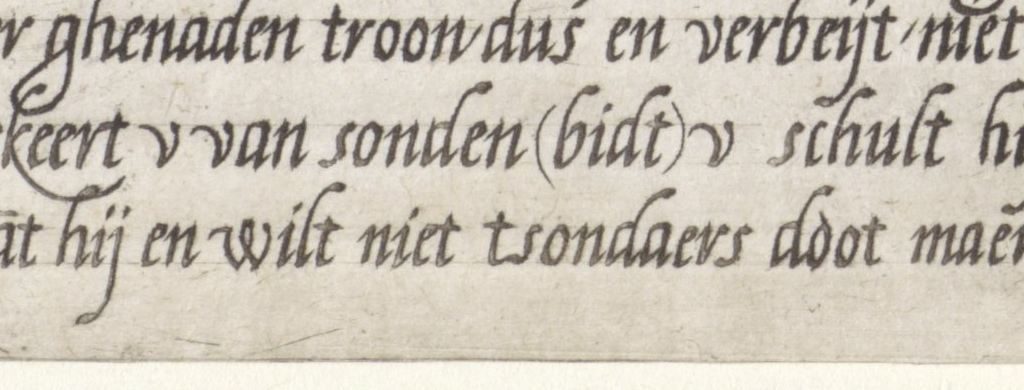 ghenaden troon/dus en verbeijt/niet
keert v van sonden (bidt) v schult
hij en wilt niet tsondaers doot